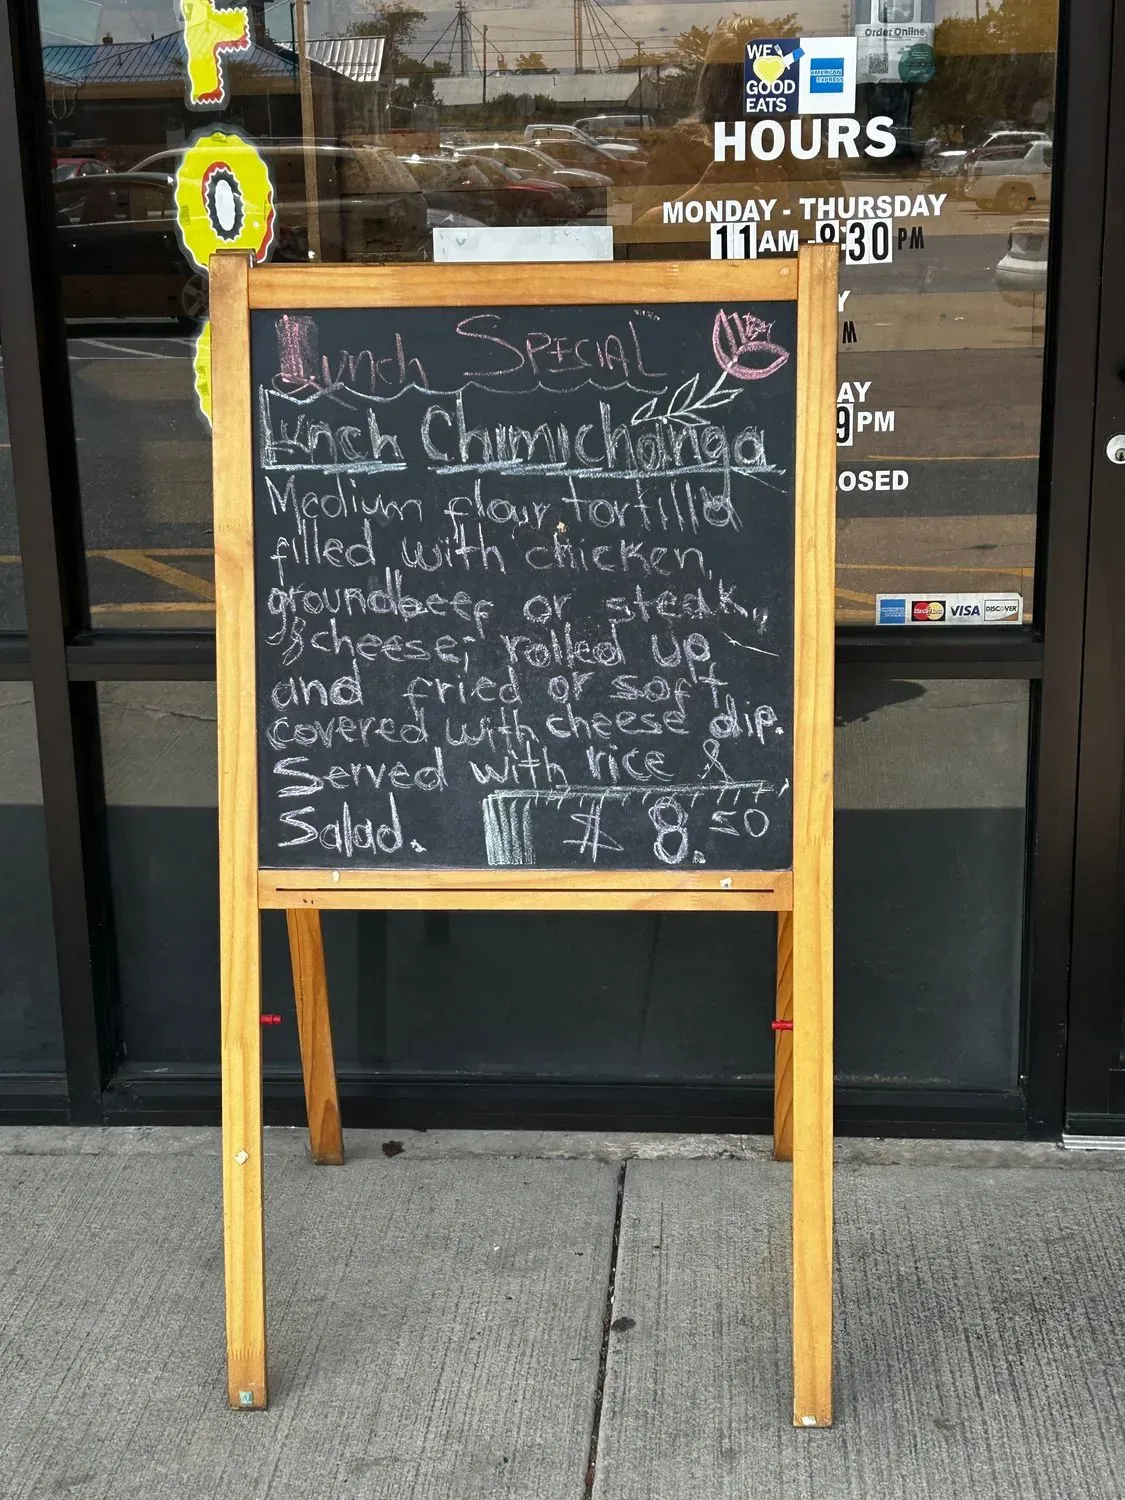 Order Online
WE
GOOD
EATS
AMERICAN
EXPRESS
HOURS
MONDAY - THURSDAY
11 AM - 8:30 PM
Y
M
AY
9 PM
LOSED
AMERICAN EXPRESS
MasterCard
VISA
DISCOVER
Lunch SPECIAL
Lunch Chimichanga
Medium flour tortilla
filled with chicken,
groundbeef or steak,
& cheese, rolled up
and fried or soft
covered with cheese dip.
Served with rice &
Salad.
$ 8.50